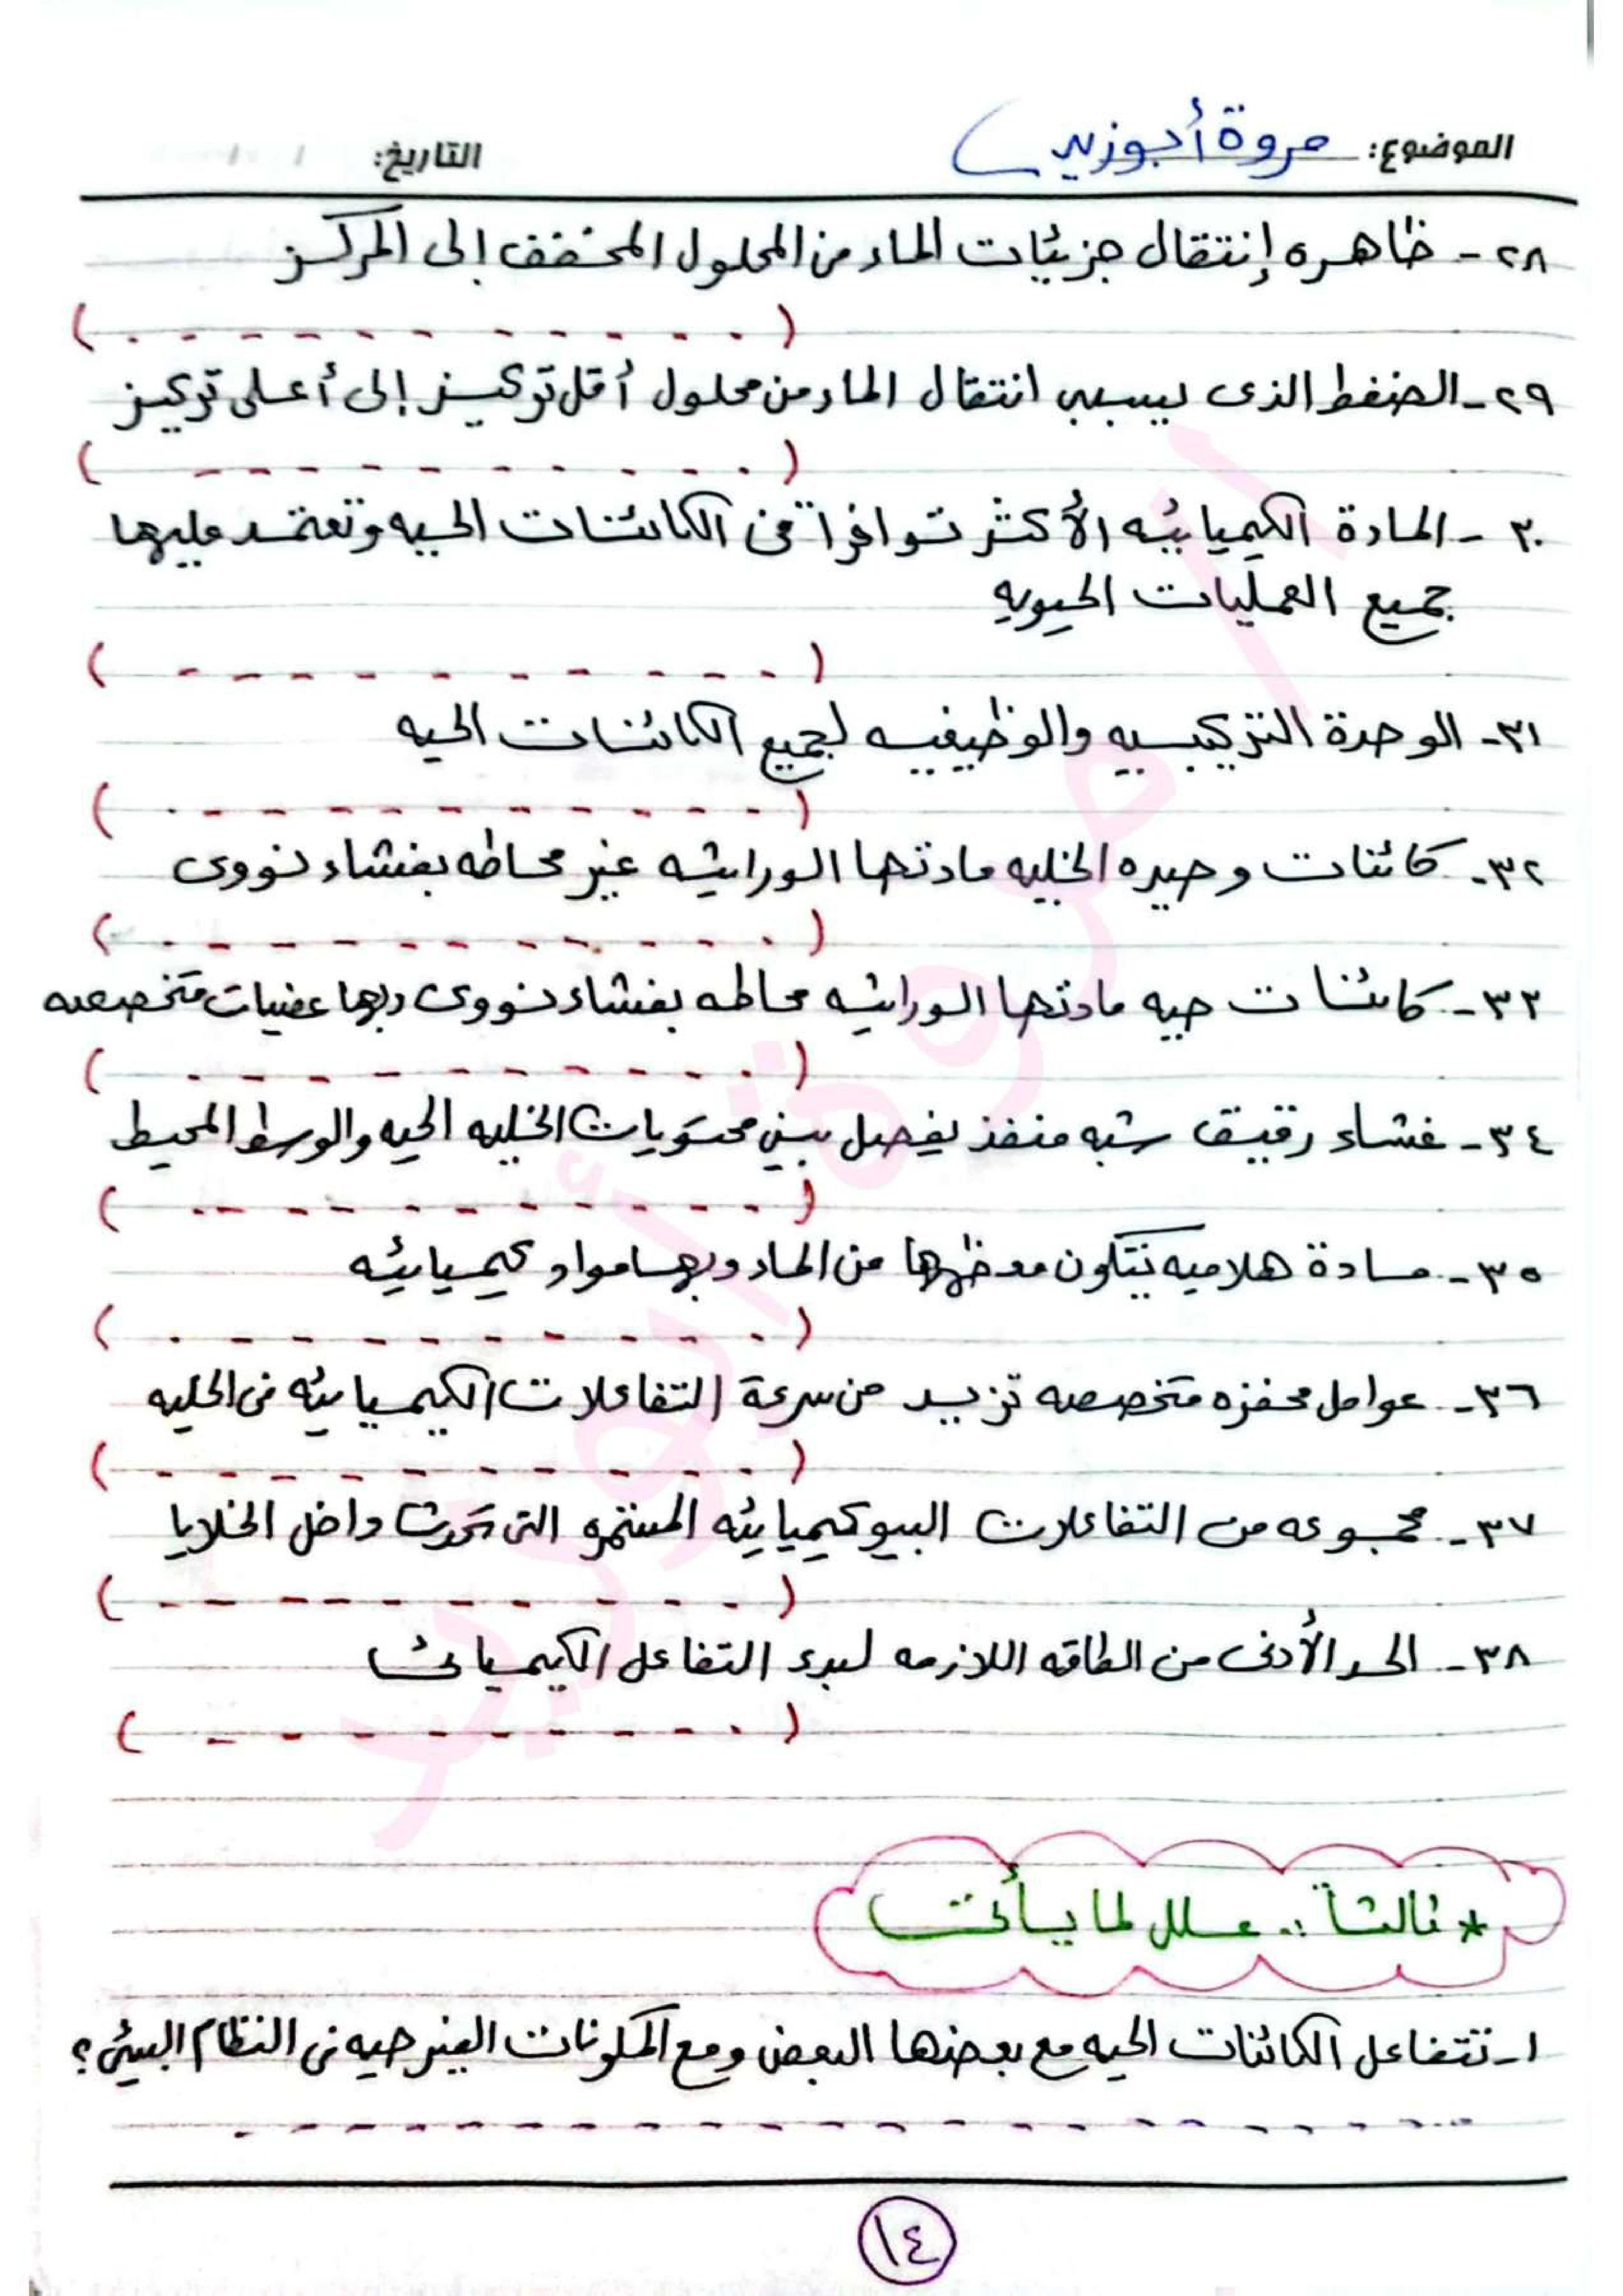 الموضوع: مروة أبوزيد
التاريخ: / /
٢٨- ظاهره إنتقال جزيئات الماء من المحلول المخفف إلى المركز
(. - - - - - - - - - -)
٢٩- الضغط الذى يسبب انتقال الماء من محلول أقل تركيز إلى أعلى تركيز
(. - - - - - - - - - -)
٣٠- المادة الكيميائيه الأكثر توافراً فى الكائنات الحيه وتعتمد عليها
جميع العمليات الحيويه
(. - - - - - - - - - -)
٣١- الوحدة التركيبيه والوظيفيه لجميع الكائنات الحيه
(. - - - - - - - - - -)
٣٢- كائنات وحيده الخليه مادتها الوراثيه غير محاطه بغشاء نووى
(. - - - - - - - - - -)
٣٣- كائنات حيه مادتها الوراثيه محاطه بغشاء نووى وبها عضيات متخصصه
(. - - - - - - - - - -)
٣٤- غشاء رقيق شبه منفذ يفصل بين محتويات الخليه الحيه والوسط المحيط
(. - - - - - - - - - -)
٣٥- مادة هلاميه تتكون معظمها من الماء وبها مواد كيميائيه
(. - - - - - - - - - -)
٣٦- عوامل محفزه متخصصه تزيد من سرعة التفاعلات الكيميائيه فى الخليه
(. - - - - - - - - - -)
٣٧- مجموعه من التفاعلات البيوكيميائيه المستمره التى تحدث داخل الخلايا
(. - - - - - - - - - -)
٣٨- الحد الأدنى من الطاقه اللازمه لبدء التفاعل الكيميائى
(. - - - - - - - - - -)
* ثالثاً :. علل لما يأتى
١- تتفاعل الكائنات الحيه مع بعضها البعض ومع المكونات الغير حيه فى النظام البيئى ؟
- - - - - - - - - - - - - - - - - -
١٤
أ/ مروة أبوزيد